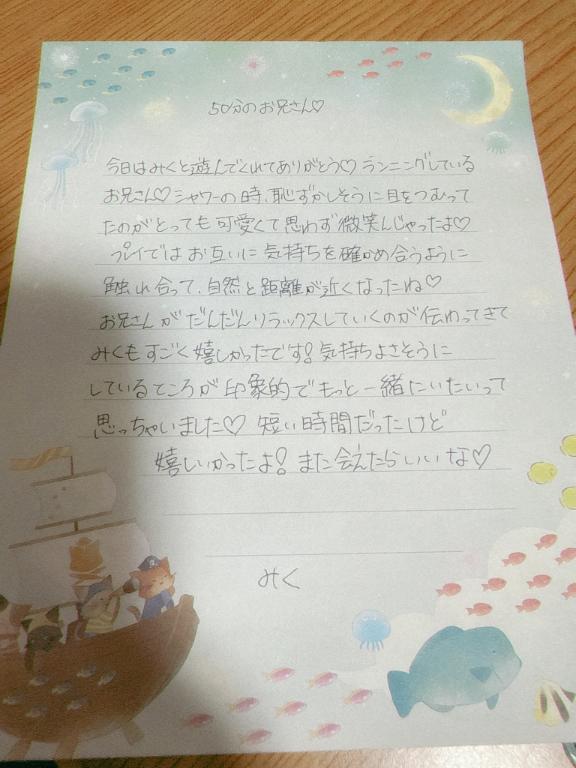 50分のお兄さん♡
今日はみくと遊んでくれてありがとう♡ ランニングしている
お兄さん♡シャワーの時、恥ずかしそうに目をつむって
たのがとっても可愛くて思わず微笑んじゃったよ♡
プレイではお互いに気持ちを確かめ合うように
触れ合って、自然と距離が近くなったね♡
お兄さんがだんだんリラックスしていくのが伝わってきて
みくもすごく嬉しかったです！気持ちよさそうに
しているところが印象的でもっと一緒にいたいって
思っちゃいました♡ 短い時間だったけど
嬉しいかったよ！また会えたらいいな♡
みく